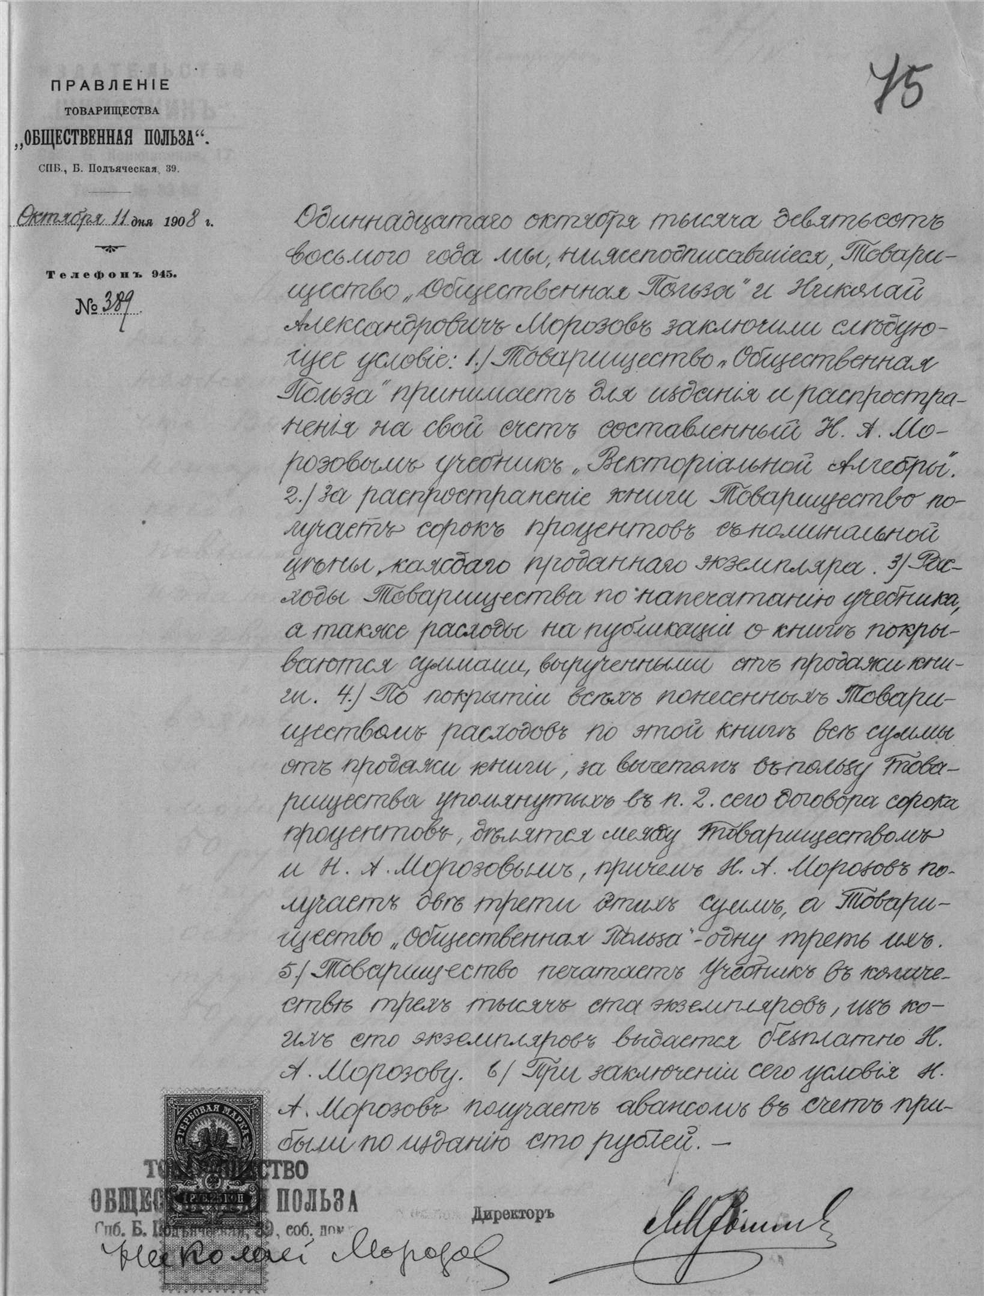 75
ПРАВЛЕНІЕ
ТОВАРИЩЕСТВА
„ОБЩЕСТВЕННАЯ ПОЛЬЗА“.
СПБ., Б. Подъяческая, 39.
Октября 11 дня 1908 г.
Телефонъ 945.
№ 389.
Одиннадцатаго октября тысяча девятьсотъ
восьмого года мы, нижеподписавшіеся, Товари-
щество „Общественная Польза“ и Николай
Александровичъ Морозовъ заключили слѣдую-
щее условіе: 1.) Товарищество „Общественная
Польза“ принимаетъ для изданія и распростра-
ненія на свой счетъ составленный Н. А. Мо-
розовымъ учебникъ „Векторіальной Алгебры“.
2.) За распространеніе книги Товарищество по-
лучаетъ сорокъ процентовъ съ номинальной
цѣны каждаго проданнаго экземпляра. 3) Рас-
ходы Товарищества по напечатанію учебника,
а также расходы на публикаціи о книгѣ покры-
ваются суммами, вырученными отъ продажи кни-
ги. 4.) По покрытіи всѣхъ понесенныхъ Товари-
ществомъ расходовъ по этой книгѣ всѣ суммы
отъ продажи книги, за вычетомъ въ пользу Това-
рищества упомянутыхъ въ п. 2. сего договора сорока
процентовъ, дѣлятся между Товариществомъ
и Н. А. Морозовымъ, причемъ Н. А. Морозовъ по-
лучаетъ двѣ трети этихъ суммъ, а Товари-
щество „Общественная Польза“ - одну треть ихъ.
5) Товарищество печатаетъ Учебникъ въ количе-
ствѣ трехъ тысячъ ста экземпляровъ, изъ ко-
ихъ сто экземпляровъ выдается безплатно Н.
А. Морозову. 6) При заключеніи сего условія Н.
А. Морозовъ получаетъ авансомъ въ счетъ при-
были по изданію сто рублей. —
ГЕРБОВАЯ МАРКА
1 РУБ. 25 КОП.
ТОВАРИЩЕСТВО
ОБЩЕСТВЕННАЯ ПОЛЬЗА
Спб. Б. Подъяческая, 39, соб. домъ
Директоръ
Николай Морозов